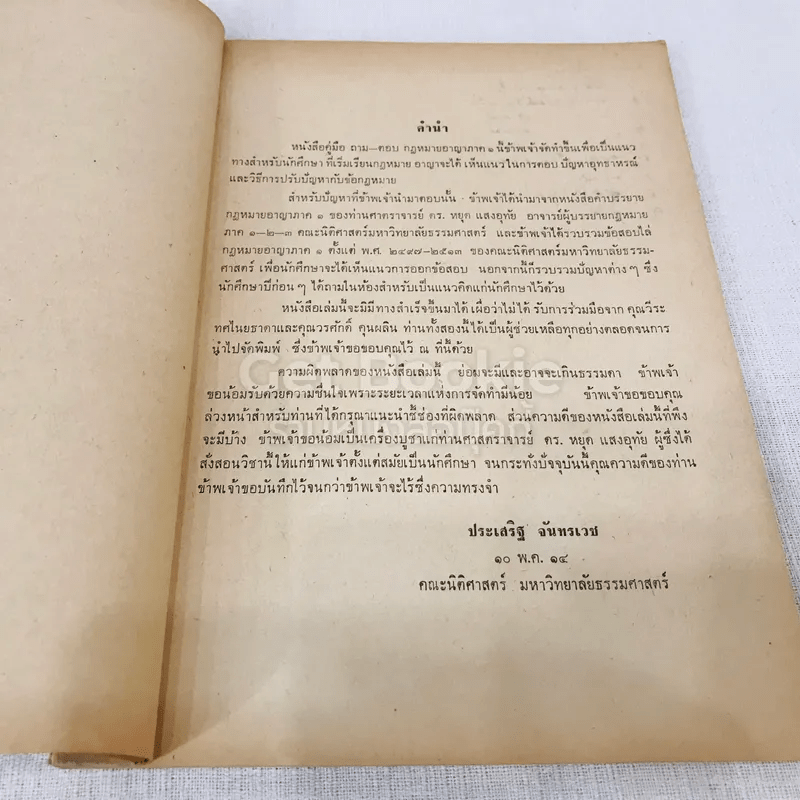 คำนำ
หนังสือคู่มือ ถาม–ตอบ กฎหมายอาญาภาค ๑ นี้ข้าพเจ้าจัดทำขึ้นเพื่อเป็นแนว
ทางสำหรับนักศึกษา ที่เริ่มเรียนกฎหมาย อาญาจะได้ เห็นแนวในการตอบ ปัญหาอุทธาหรณ์
และวิธีการปรับปัญหากับข้อกฎหมาย
สำหรับปัญหาที่ข้าพเจ้านำมาตอบนั้น ข้าพเจ้าได้นำมาจากหนังสือคำบรรยาย
กฎหมายอาญาภาค ๑ ของท่านศาตราจารย์ ดร. หยุด แสงอุทัย อาจารย์ผู้บรรยายกฎหมาย
ภาค ๑–๒–๓ คณะนิติศาสตร์มหาวิทยาลัยธรรมศาสตร์ และข้าพเจ้าได้รวบรวมข้อสอบไล่
กฎหมายอาญาภาค ๑ ตั้งแต่ พ.ศ. ๒๔๙๗–๒๕๑๓ ของคณะนิติศาสตร์มหาวิทยาลัยธรรม–
ศาสตร์ เพื่อนักศึกษาจะได้เห็นแนวการออกข้อสอบ นอกจากนี้ก็รวบรวมปัญหาต่าง ๆ ซึ่ง
นักศึกษามีก่อน ๆ ได้ถามในห้องสำหรับเป็นแนวคิดแก่นักศึกษาไว้ด้วย
หนังสือเล่มนี้จะมีมีทางสำเร็จขึ้นมาได้ เผื่อว่าไม่ได้ รับการร่วมมือจาก คุณวีระ
ทศไนยธาดาและคุณวรศักดิ์ คุนผลิน ท่านทั้งสองนี้ได้เป็นผู้ช่วยเหลือทุกอย่างตลอดจนการ
นำไปจัดพิมพ์ ซึ่งข้าพเจ้าขอขอบคุณไว้ ณ ที่นี้ด้วย
ความผิดพลาดของหนังสือเล่มนี้ ย่อมจะมีและอาจจะเกินธรรมดา ข้าพเจ้า
ขอน้อมรับด้วยความชื่นใจเพราะระยะเวลาแห่งการจัดทำมีน้อย ข้าพเจ้าขอขอบคุณ
ล่วงหน้าสำหรับท่านที่ได้กรุณาแนะนำชี้ช่องที่ผิดพลาด ส่วนความดีของหนังสือเล่มนี้ที่พึง
จะมีบ้าง ข้าพเจ้าขอน้อมเป็นเครื่องบูชาแก่ท่านศาสตราจารย์ ดร. หยุด แสงอุทัย ผู้ซึ่งได้
สั่งสอนวิชานี้ ให้แก่ข้าพเจ้าตั้งแต่สมัยเป็นนักศึกษา จนกระทั่งปัจจุบันนี้คุณความดีของท่าน
ข้าพเจ้าขอบันทึกไว้จนกว่าข้าพเจ้าจะไร้ซึ่งความทรงจำ
ประเสริฐ จันทรเวช
๑๐ พ.ค. ๑๔
คณะนิติศาสตร์ มหาวิทยาลัยธรรมศาสตร์